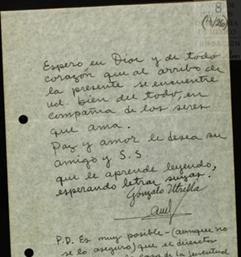 8
(4/26)
Espero en Dios y de todo
corazón que al arribo de
la presente se encuentre
ud. bien del todo, en
compañia de los seres
que ama.
Paz y amor le desea su
amigo y S.S
que le aprende leyendo,
esperando letras suyas.
Gonzalo Utrella
P.D. Es muy posible-(aunque no
se lo aseguro) que el director
de la Casa de la Juventud